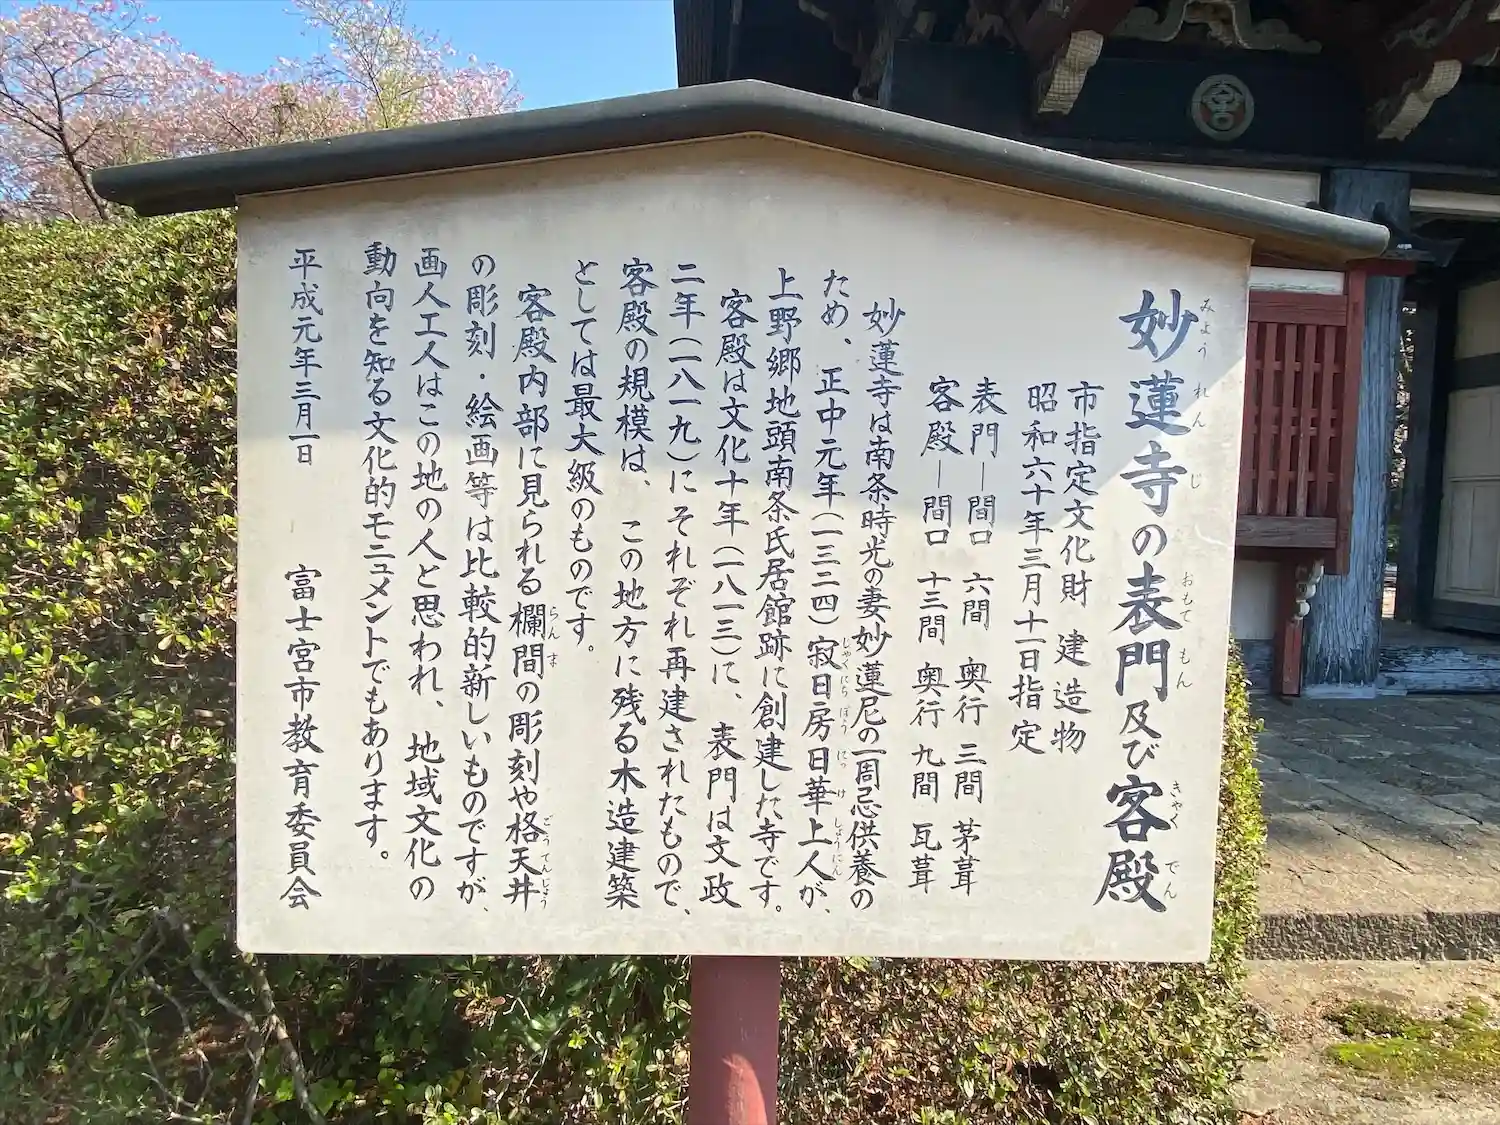 妙蓮寺の表門及び客殿
市指定文化財 建造物
昭和六十年三月十一日指定
表門―間口 六間 奥行 三間 茅葺
客殿―間口 十三間 奥行 九間 瓦葺
妙蓮寺は南条時光の妻妙蓮尼の一周忌供養の
ため、正中元年(一三二四)寂日房日華上人が、
上野郷地頭南条氏居館跡に創建した寺です。
客殿は文化十年(一八一三)に、表門は文政
二年(一八一九)にそれぞれ再建されたもので、
客殿の規模は、この地方に残る木造建築
としては最大級のものです。
客殿内部に見られる欄間の彫刻や格天井
の彫刻・絵画等は比較的新しいものですが、
画人工人はこの地の人と思われ、地域文化の
動向を知る文化的モニュメントでもあります。
平成元年三月一日 富士宮市教育委員会